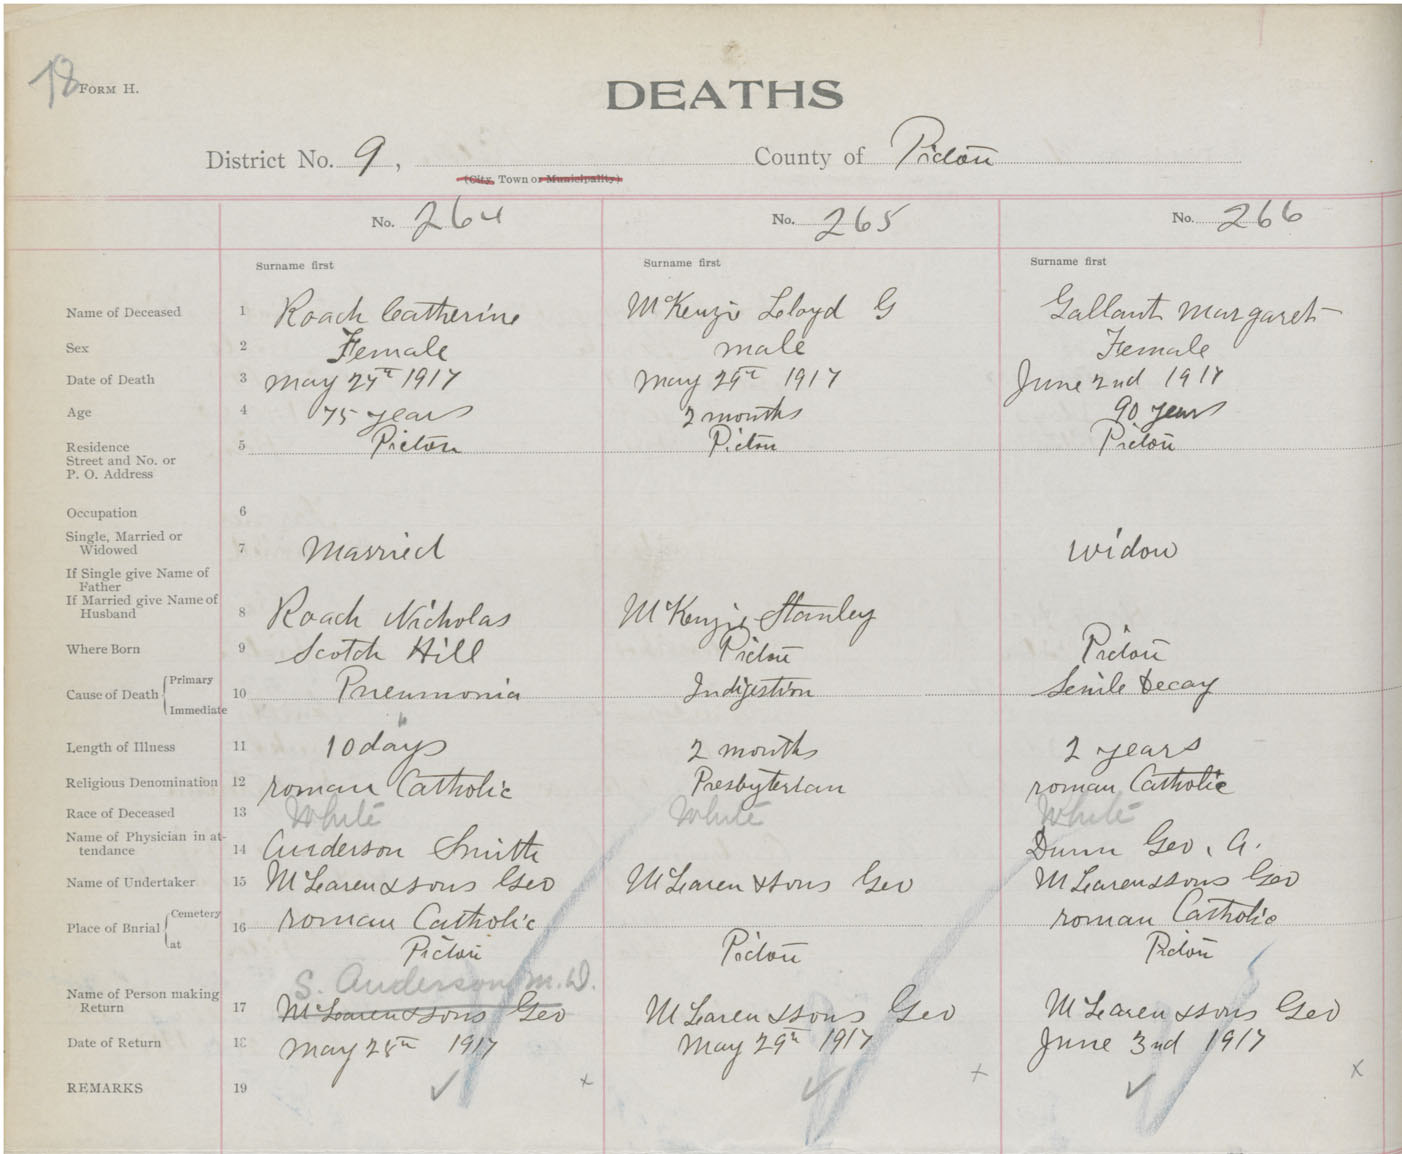 18
FORM H.
DEATHS
District No. 9, County of Pictou
(City, Town or Municipality)
No. 264 No. 265 No. 266
Surname first Surname first Surname first
Name of Deceased 1 Roach Catherine McKenzie Lloyd G Gallant Margaret
Sex 2 Female male Female
Date of Death 3 May 27th 1917 May 29th 1917 June 2nd 1917
Age 4 75 years 2 months 90 years
Residence 5 Pictou Pictou Pictou
Street and No. or
P. O. Address
Occupation 6
Single, Married or
Widowed 7 Married Widow
If Single give Name of
Father
If Married give Name of
Husband 8 Roach Nicholas McKenzie Stanley
Where Born 9 Scotch Hill Pictou Pictou
Cause of Death { Primary 10 Pneumonia Indigestion Senile Decay
Immediate "
Length of Illness 11 10 days 2 months 2 years
Religious Denomination 12 roman Catholic Presbyterian roman Catholic
Race of Deceased 13 White White White
Name of Physician in at-
tendance 14 Anderson Smith Dunn Geo. A.
Name of Undertaker 15 McLaren & sons Geo McLaren & sons Geo McLaren & sons Geo
Place of Burial { Cemetery 16 roman Catholic roman Catholic
at Pictou Pictou Pictou
S. Anderson M.D.
Name of Person making
Return 17 McLaren & sons Geo McLaren & sons Geo McLaren & sons Geo
Date of Return 18 May 28th 1917 May 29th 1917 June 3rd 1917
REMARKS 19 ✓ x ✓ x ✓ x